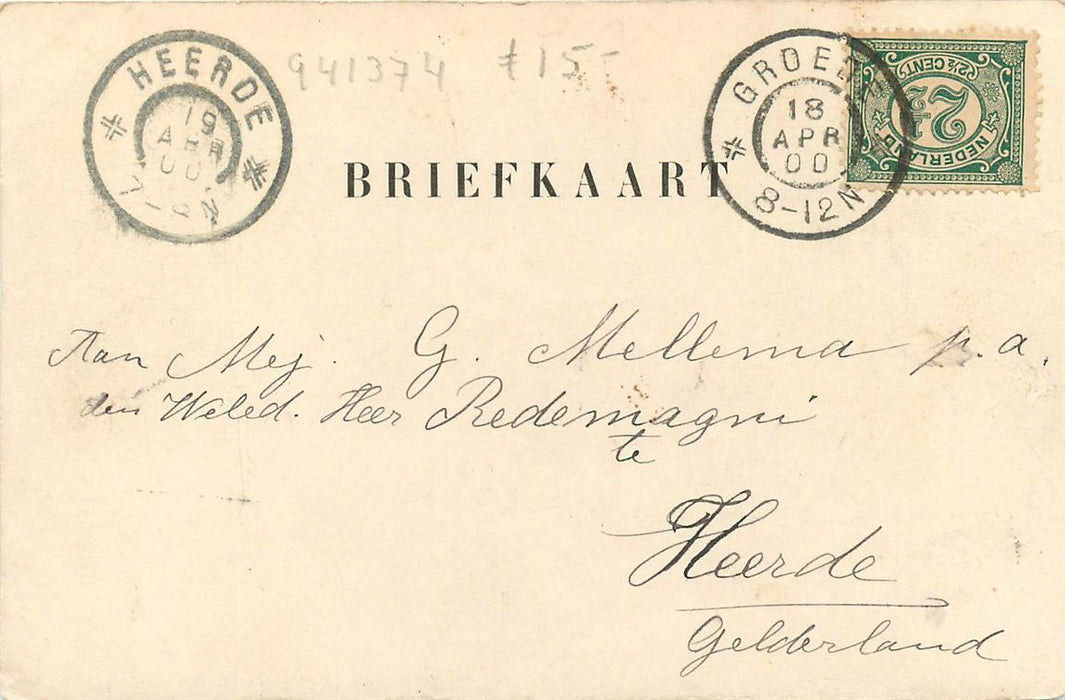 HEERDE
19
APR
00
7-8N
941374 £15-
GROEDE
18
APR
00
8-12N
2½ CENT
2½
NEDERLAND
BRIEFKAART
Aan Mej. G. Mellema p.a.
den Weled. Heer Redemagni
te
Heerde
Gelderland